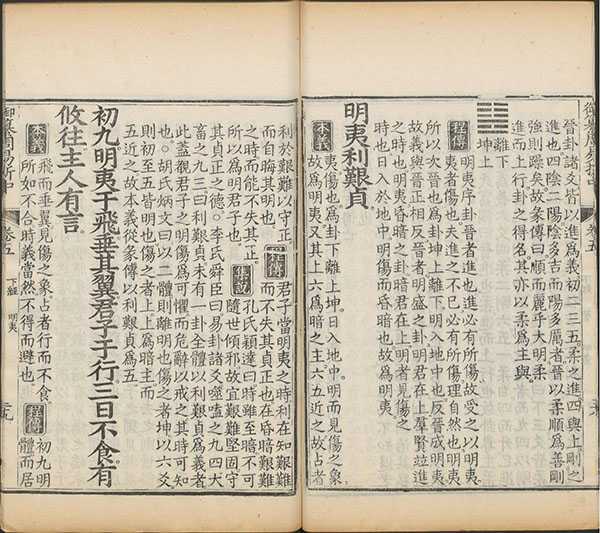 晉卦諸爻皆以進爲義初二三五柔之進四與上剛之
進也四陰二陽陰多吉而陽多厲者晉以柔順爲善剛
強則躁矣故彖傳曰順而麗乎大明柔
進而上行卦之得名其亦以柔爲主與
坤上
程傳 明夷序卦晉者進也進必有所傷故受之以明夷
夷者傷也夫進之不已必有所傷理自然也明夷
所以次晉也爲卦坤上離下明入地中也反晉成明夷
故義與晉正相反晉者明盛之卦明君在上羣賢竝進
之時也明夷昏暗之卦暗君在上明者見傷之
時也日入於地中明傷而昏暗也故爲明夷
明夷利艱貞
本義 夷傷也爲卦下離上坤日入地中明而見傷之象
故爲明夷又其上六爲暗之主六五近之故占者
利於艱難以守正
而自晦其明也
程傳 君子當明夷之時利在知艱難
而不失其貞正也在昏暗艱難
之時而能不失其正
所以爲明君子也
集說 孔氏穎達曰時雖至暗不可
隨世傾邪故宜艱難堅固守
其貞正之德。李氏舜臣曰易卦諸爻噬嗑之九四大
畜之九三曰利艱貞未有一卦全體以利艱貞爲義者
此蓋觀君子之明傷爲可懼而危辭以戒之其時可知
。胡氏炳文曰以二體則離明也傷之者坤以六爻
則初至五皆明也傷之者上上爲暗主而
五近之故本義從彖傳以利艱貞爲五
初九明夷于飛垂其翼君子于行三日不食有
攸往主人有言
本義 飛而垂翼見傷之象占者行而不食
所如不合時義當然不得而避也
程傳 初九明
體而居
御纂周易折中
卷五
下經 明夷